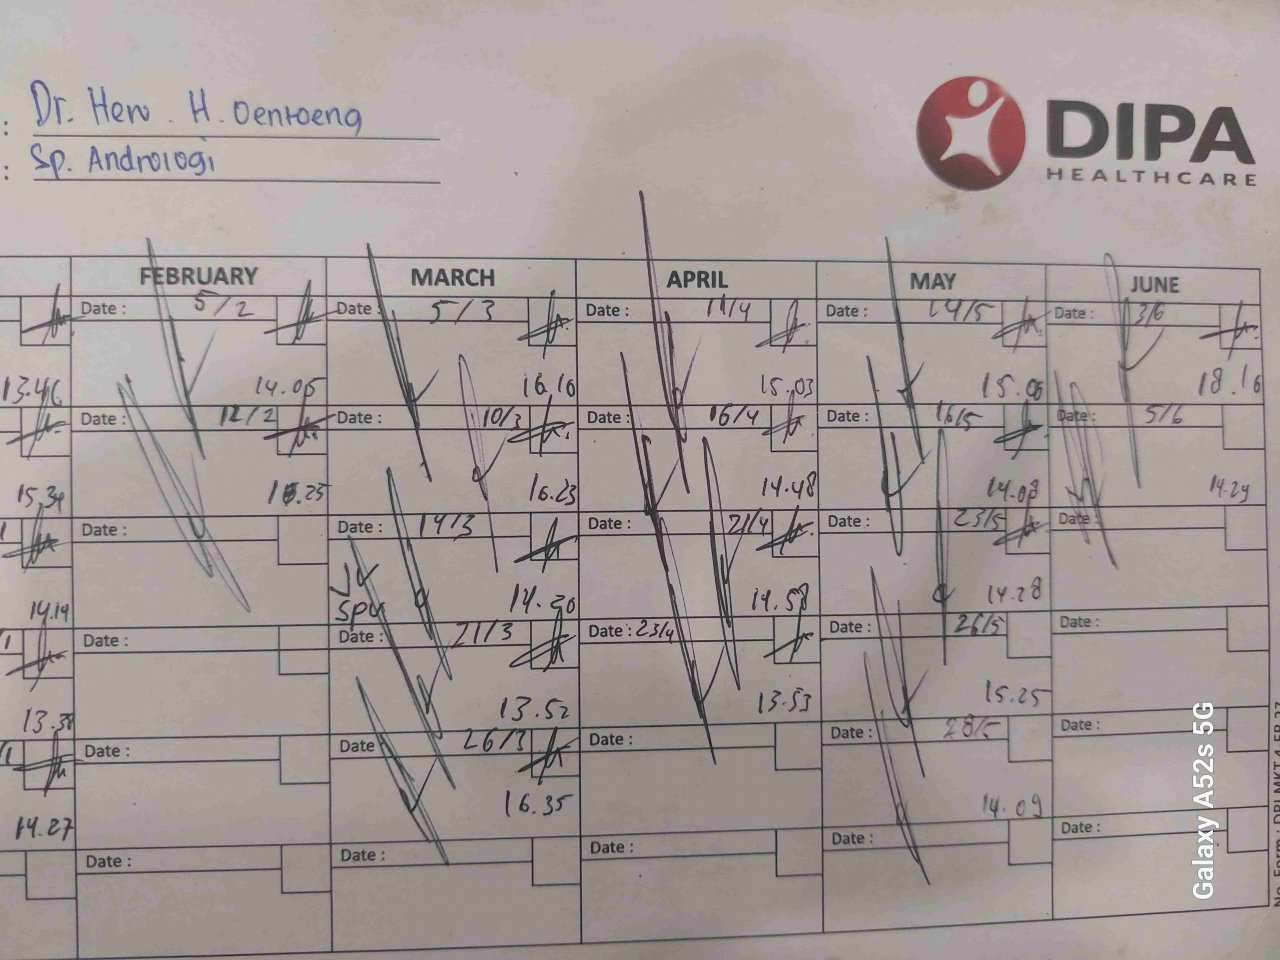 : Dr. Heru . H. Oentoeng
: Sp. Andrologi
DIPA
HEALTHCARE
FEBRUARY MARCH APRIL MAY JUNE
Date : 5/2 Date : 5/3 Date : 11/4 Date : 14/5 Date : 3/6
13.46 14.05 16.10 15.03 15.06 18.16
Date : 12/2 Date : 10/3 Date : 16/4 Date : 16/5 Date : 5/6
15.34 16.23 14.48 14.08 14.29
Date : Date : 19/3 Date : 21/4 Date : 23/5 Date :
14.19 14.20 14.58 14.28
Date : Date : 21/3 Date : 23/4 Date : 26/5 Date :
13.38 13.52 13.53 15.25
Date : Date 26/3 Date : Date : 28/5 Date :
14.27 16.35 14.09
Date : Date : Date : Date : Date :
Galaxy A52s 5G